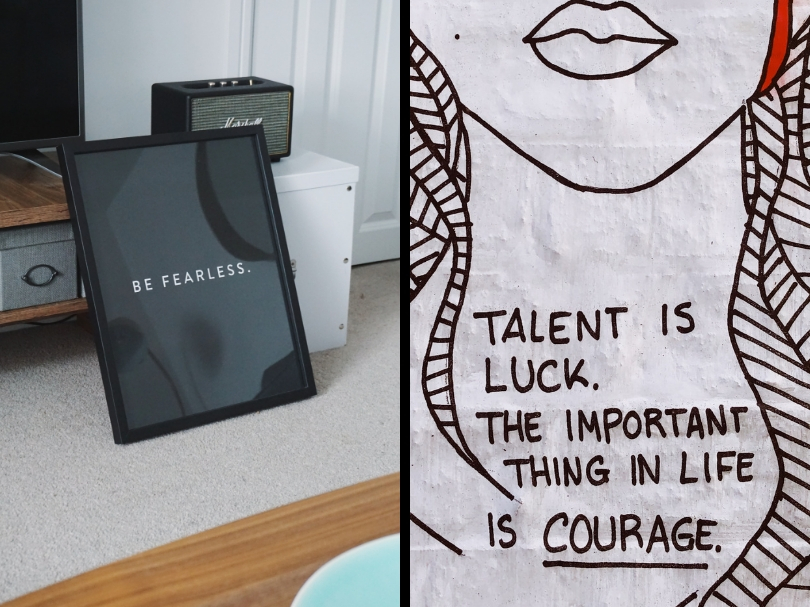 Marshall
BE FEARLESS.
TALENT IS
LUCK.
THE IMPORTANT
THING IN LIFE
IS COURAGE.